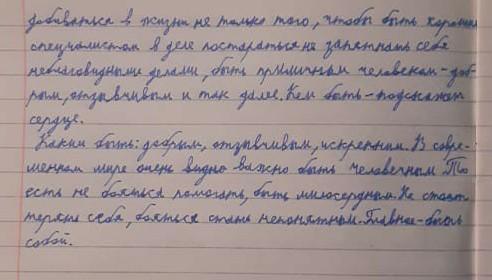 добиваться в жизни не только того, чтобы быть хорошим
специалистом в деле постараться не запятнать себя
неблаговидными делами, быть приличным человеком-доб-
рым, отзывчивым и так далее. Кем быть-подскажет
сердце.
Каким быть: добрым, отзывчивым, искренним. В совре-
менном мире очень видно важно быть человечным То
есть не бояться помогать, быть милосердным. Не стоит
терять себя, бояться стать непонятным. Главное-быть
собой.